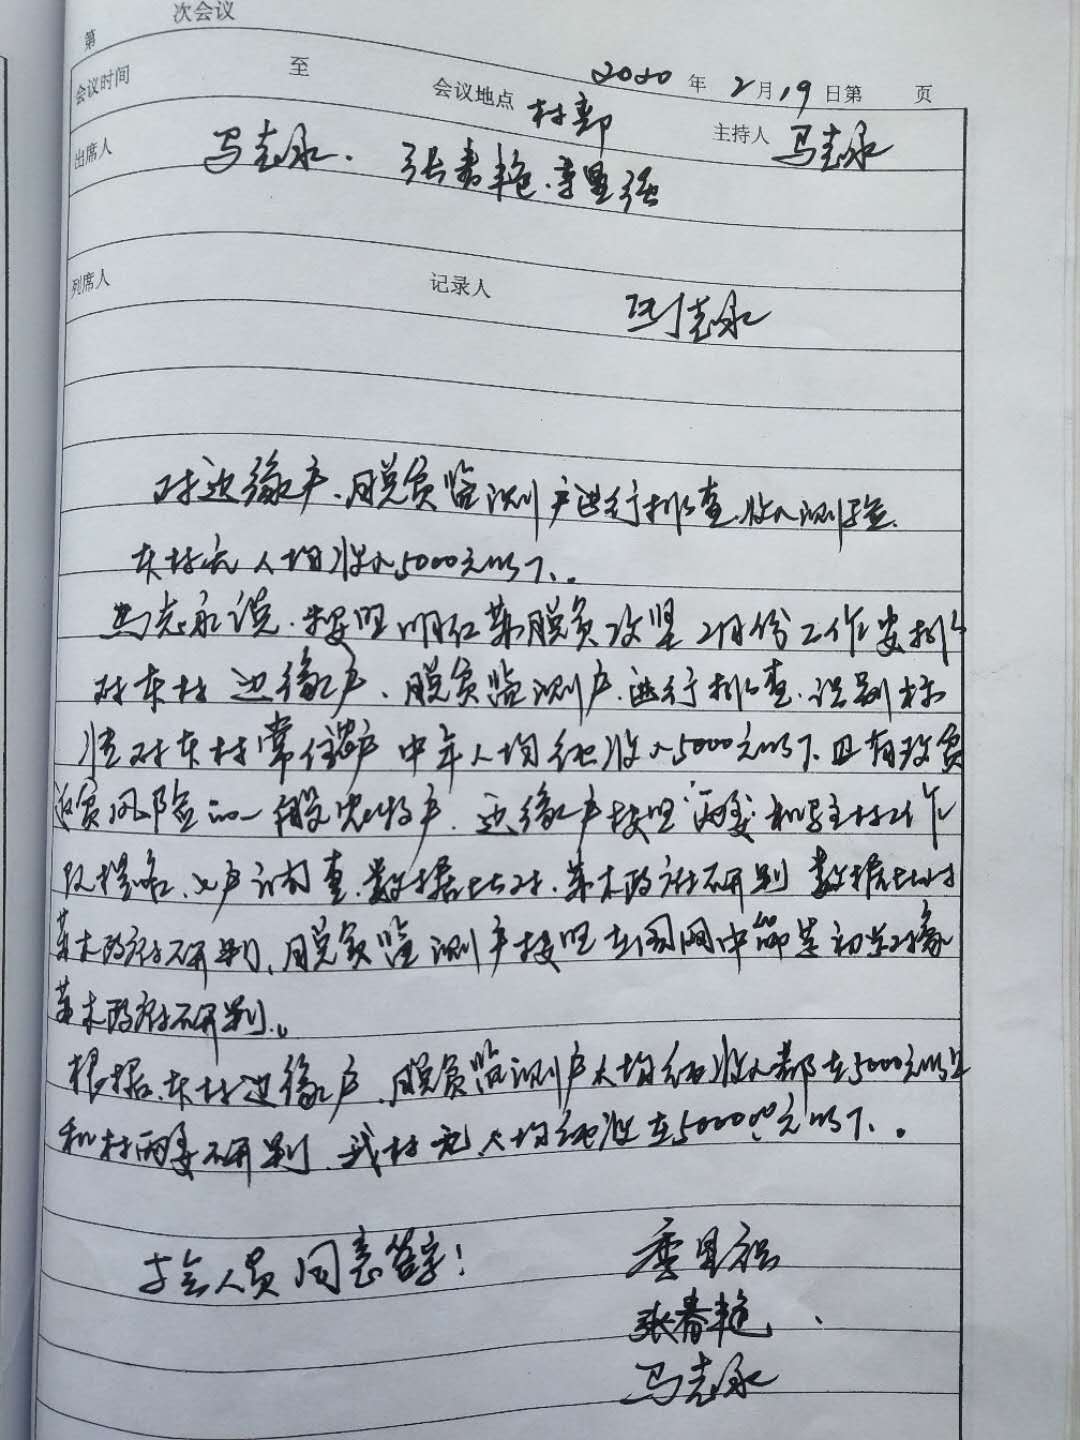 第 次会议
2020年2月19日第 页
会议时间 至 会议地点 村部 主持人 马志永
出席人 马志永. 张春艳.李显强
列席人 记录人 马志永
对边缘户、脱贫监测户进行排查.收入测验.
本村无人均收入5000元以下..
马志永说.按照 脱贫攻坚2月份工作安排
对本村边缘户、脱贫监测户.进行排查.识别标
准对本村常住户中年人均纯收入5000元以下.且有致贫
返贫风险的一般农户.边缘户按照"两委"和驻村工作
队提名、入户调查.数据比对. 研判 数据比对
研判、脱贫监测户按照在国网中
研判.。
根据.本村边缘户、脱贫监测户人均纯收入都在5000元以上
和村两委研判.我村无人均纯收在5000.00元以下.。
与会人员同意签字!
李显强
张春艳.
马志永